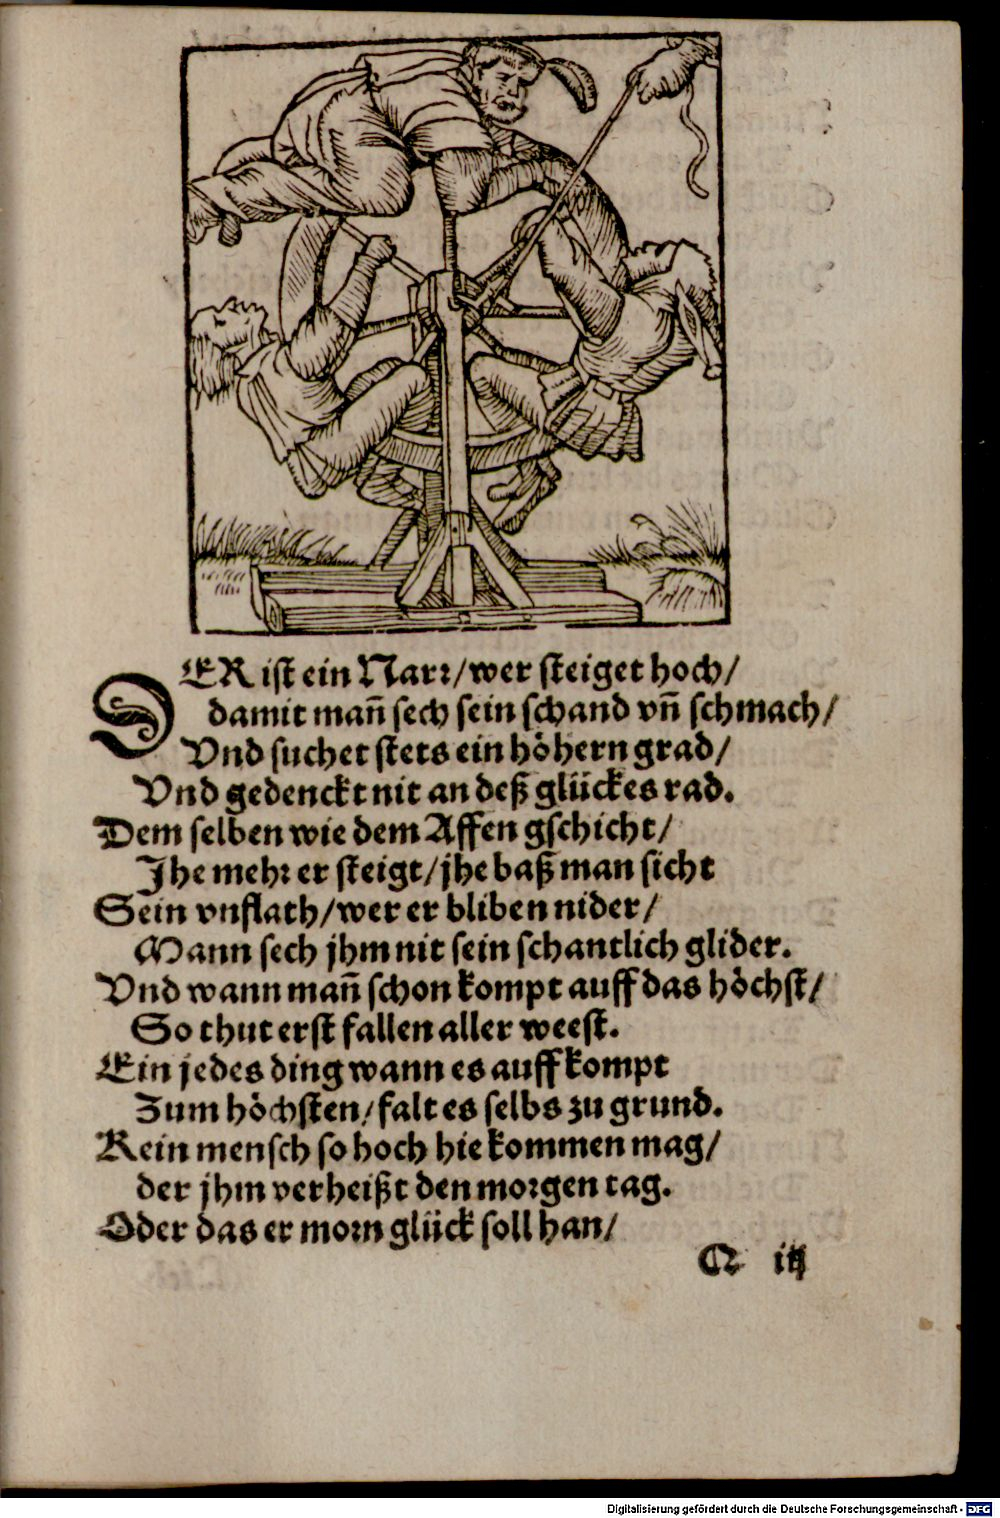 DER ist ein Narr/wer steiget hoch/
damit mañ sech sein schand vñ schmach/
Vnd suchet stets ein höhern grad/
Vnd gedenckt nit an deß glückes rad.
Dem selben wie dem Affen gschicht/
Jhe mehr er steigt/jhe baß man sicht
Sein vnflath/wer er bliben nider/
Mann sech jhm nit sein schantlich glider.
Vnd wann mañ schon kompt auff das höchst/
So thut erst fallen aller weest.
Ein jedes ding wann es auff kompt
Zum höchsten/falt es selbs zu grund.
Kein mensch so hoch hie kommen mag/
der jhm verheißt den morgen tag.
Oder das er morn glück soll han/
Q iij
Digitalisierung gefördert durch die Deutsche Forschungsgemeinschaft - DFG